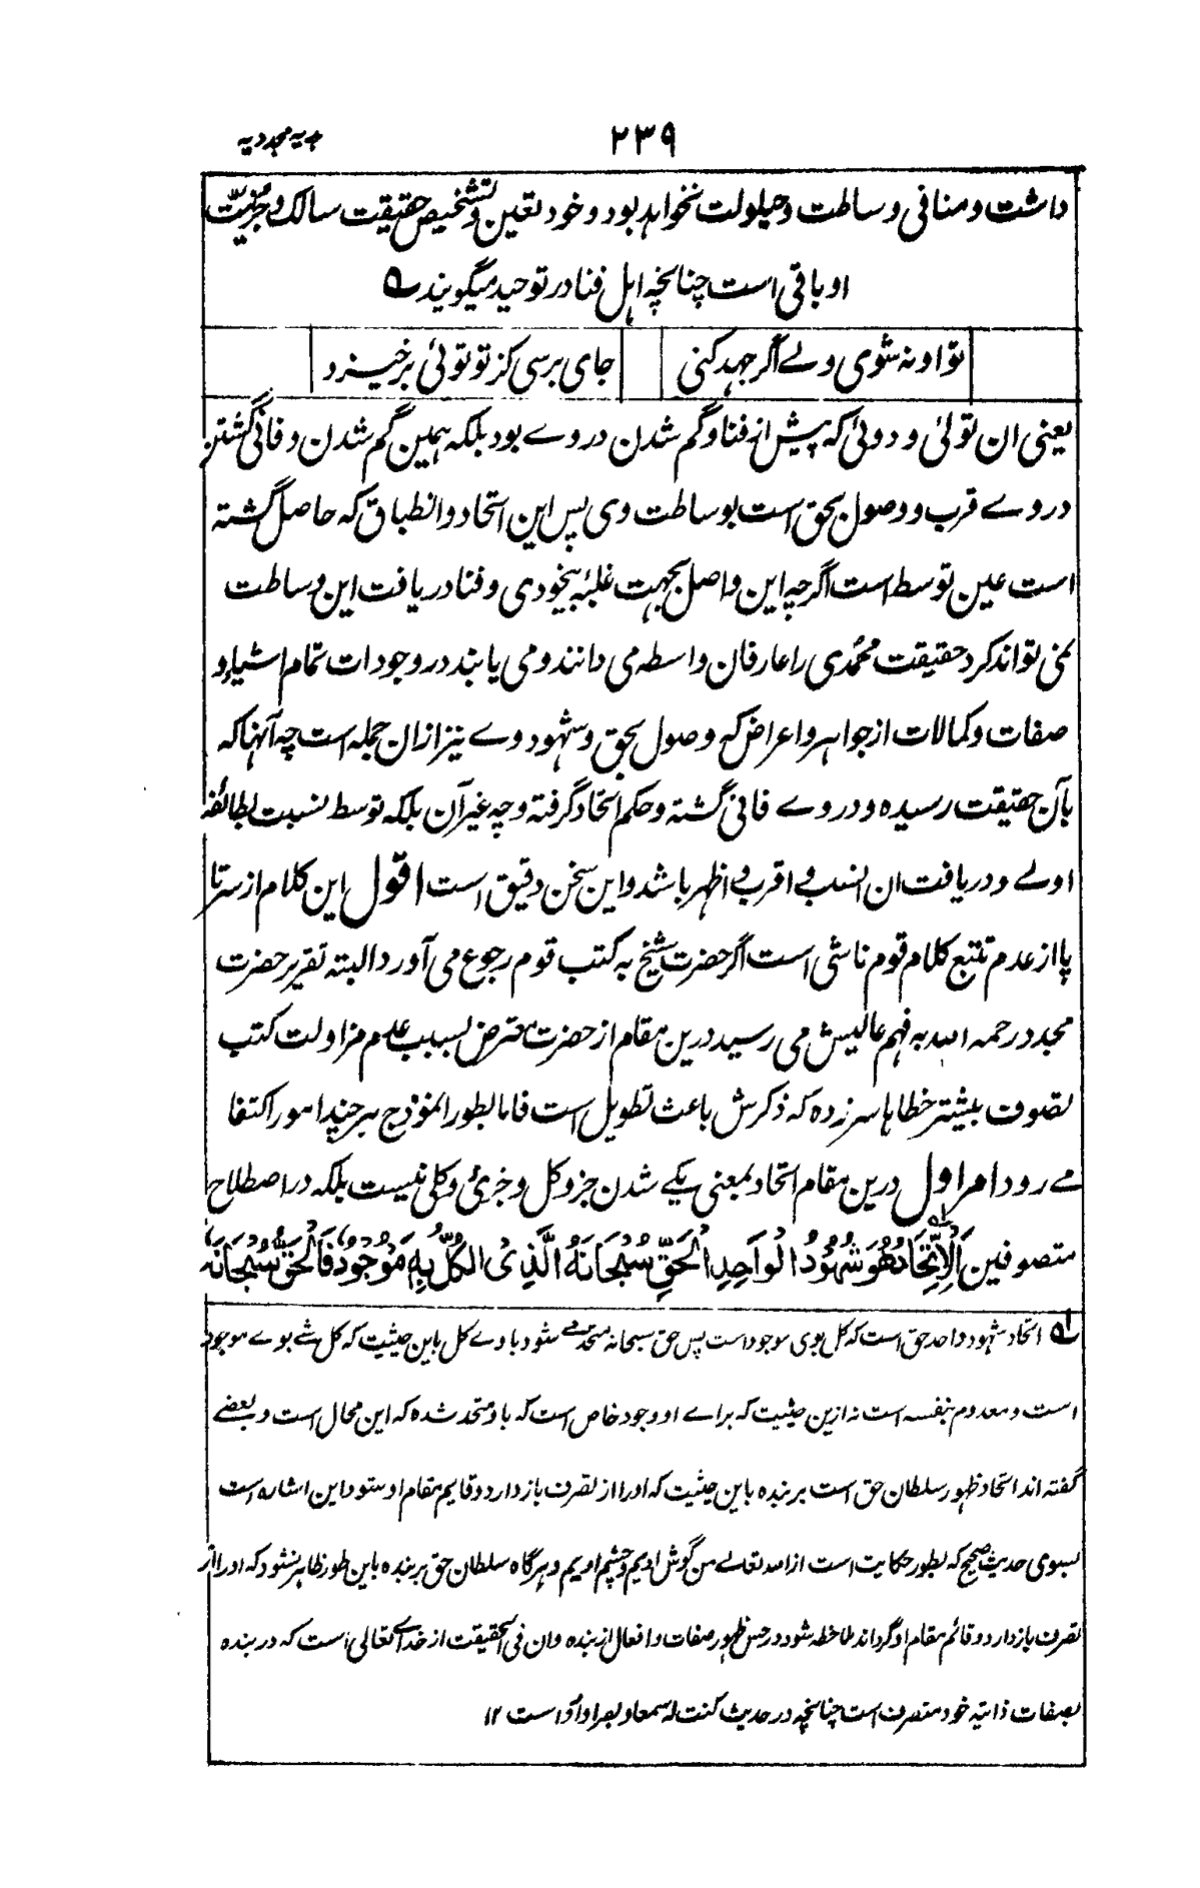 ۲۳۹
ہدیہ مجددیہ
داشت و منافی وساطت و حیلولت نخواہد بود و خود تعین و تشخیص حقیقت سالک و جزئیّت
او باقی است چنانچہ اہل فنا در توحید میگویند ؎
تو او نہ شوی ولے اگر جہد کنی
جای برسی کز تو توئی برخیزد
یعنی ان توئی و دوئی کہ پیش از فنا و گم شدن در وے بود بلکہ ہمین گم شدن و فانی گشتن
در وے قرب و وصول بحق است بوساطت وی پس این اتحاد و انطباق کہ حاصل گشتہ
است عین توسط است اگرچہ این واصل بجہت غلبۂ بیخودی و فنا دریافت این وساطت
نمی تواند کرد حقیقت محمدی را عارفان واسطہ می دانند و می یابند در وجودات تمام اشیاء و
صفات و کمالات از جواہر و اعراض کہ وصول بحق و شہود وے نیز ازان جملہ است چہ آنہا کہ
بآن حقیقت رسیدہ و در وے فانی گشتہ و حکم اتحاد گرفتہ و چہ غیر آن بلکہ توسط نسبت بطائفہ
اولے و دریافت ان انسب و اقرب و اظہر باشد و این سخن دقیق است اقول این کلام از سر تا
پا از عدم تتبع کلام قوم ناشی است اگر حضرت شیخ بہ کتب قوم رجوع می آورد البتہ تقریر حضرت
مجدد رحمہ اللہ بہ فہم عالیش می رسید درین مقام از حضرت معترض بسبب عدم مزاولت کتب
تصوف بیشتر خطاہا سر زدہ کہ ذکرش باعث تطویل است فاما بطور انموذج بر چند امور اکتفا
مے رود امر اول درین مقام اتحاد بمعنی یکے شدن جز و کل و جزئ و کلی نیست بلکہ در اصطلاح
متصوفین اَلْاِتِّحَادُ هُوَ شُهُوْدُ الْوَاحِدِ الْحَقِّ سُبْحَانَهُ الَّذِیْ الْكُلُّ بِهٖ مَوْجُوْدٌ فَالْحَقُّ سُبْحَانَهُ
لہ اتحاد شہود واحد حق است کہ کل بوی موجود است پس حق سبحانہ متحد مے شود با وے کل باین حیثیت کہ کل شے بوے موجود
است و معدوم بنفسہ است نہ ازین حیثیت کہ براے او وجود خاص است کہ باو متحد شدہ کہ این محال است و بعضے
گفتہ اند اتحاد ظہور سلطان حق است بر بندہ باین حیثیت کہ او را از تصرف باز دارد و قایم مقام او ستود این اشارہ است
بسوی حدیث صحیح کہ بطور حکایت است از اللہ تعالے من گوش اویم و چشم اویم و ہرگاہ سلطان حق بر بندہ باین طور ظاہر بشود کہ او را از
تصرف باز دارد و قائم مقام او گرداند ملاحظہ شود در حین ظہور صفات و افعال از بندہ و ان فی الحقیقت از خداے تعالی است کہ در بندہ
بصفات ذاتیہ خود متصرف است چنانچہ در حدیث کنت لہ سمعا و بصرا وارد است ۱۲